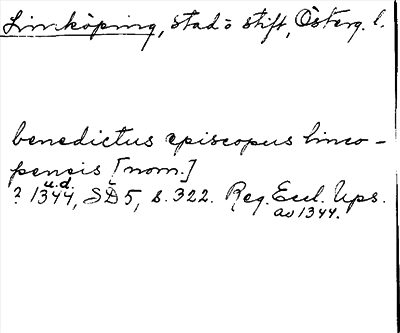 Linköping, stad o stift, Österg. l.
benedictus episcopus linco-
pensis [nom.]
? 1344, u.d. SD 5, s. 322. Reg. Eccl. Ups.
av 1344.